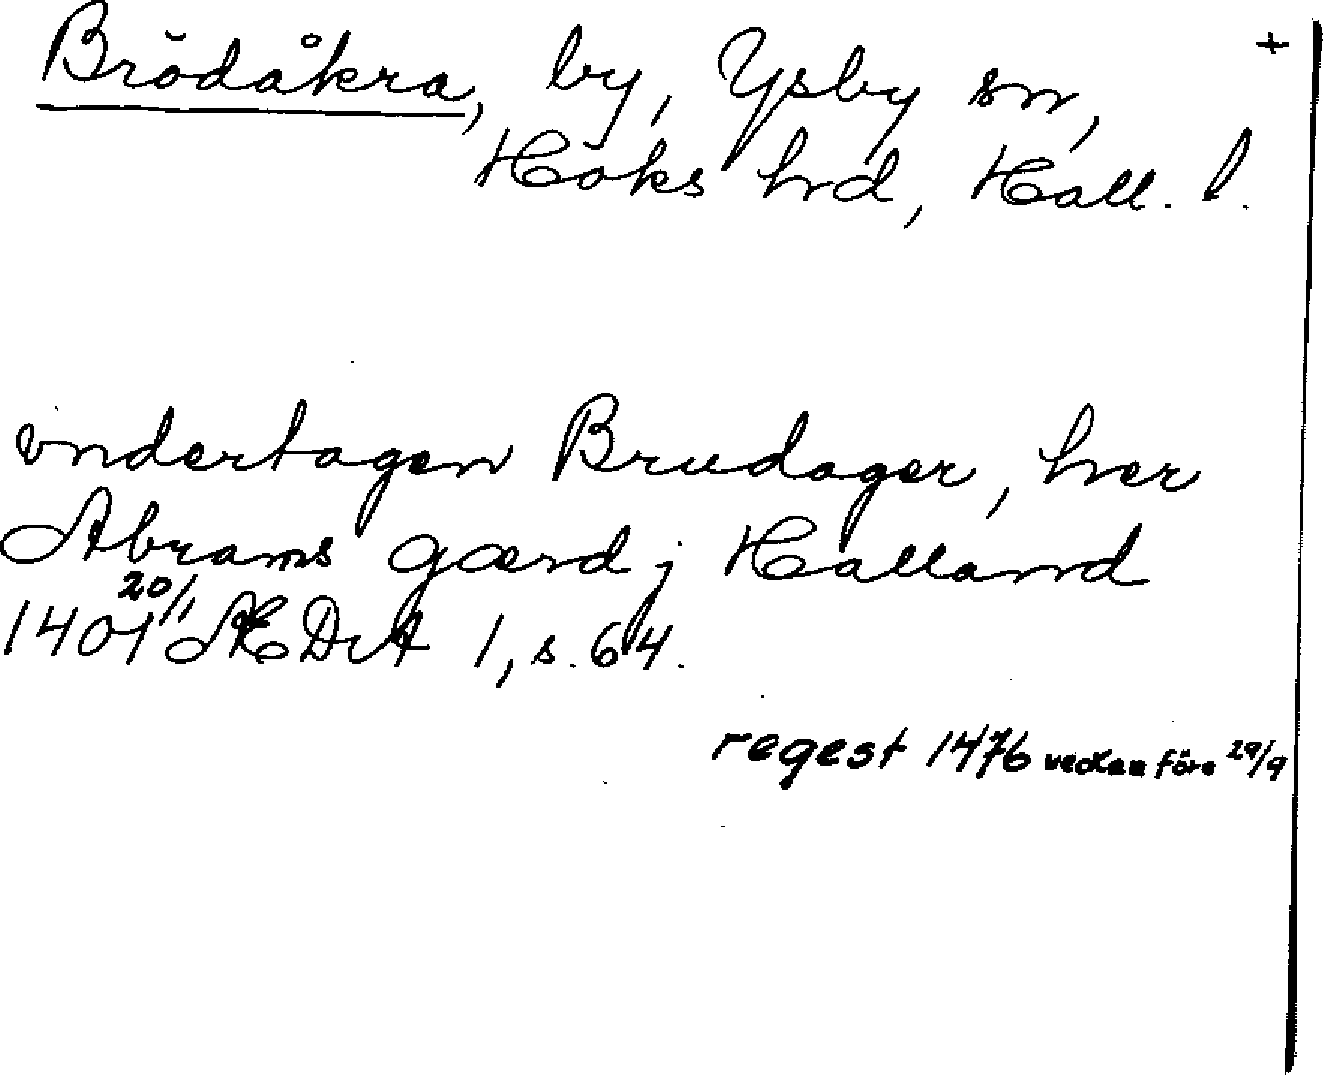 Brödåkra, by, Ysby sn, +
Höks hrd, Hall. l.
vndertagen Brudager, her
Abrams gærd j Halland
1401 20/1 ÆDA 1, s. 64.
regest 1476 veckan före 29/9